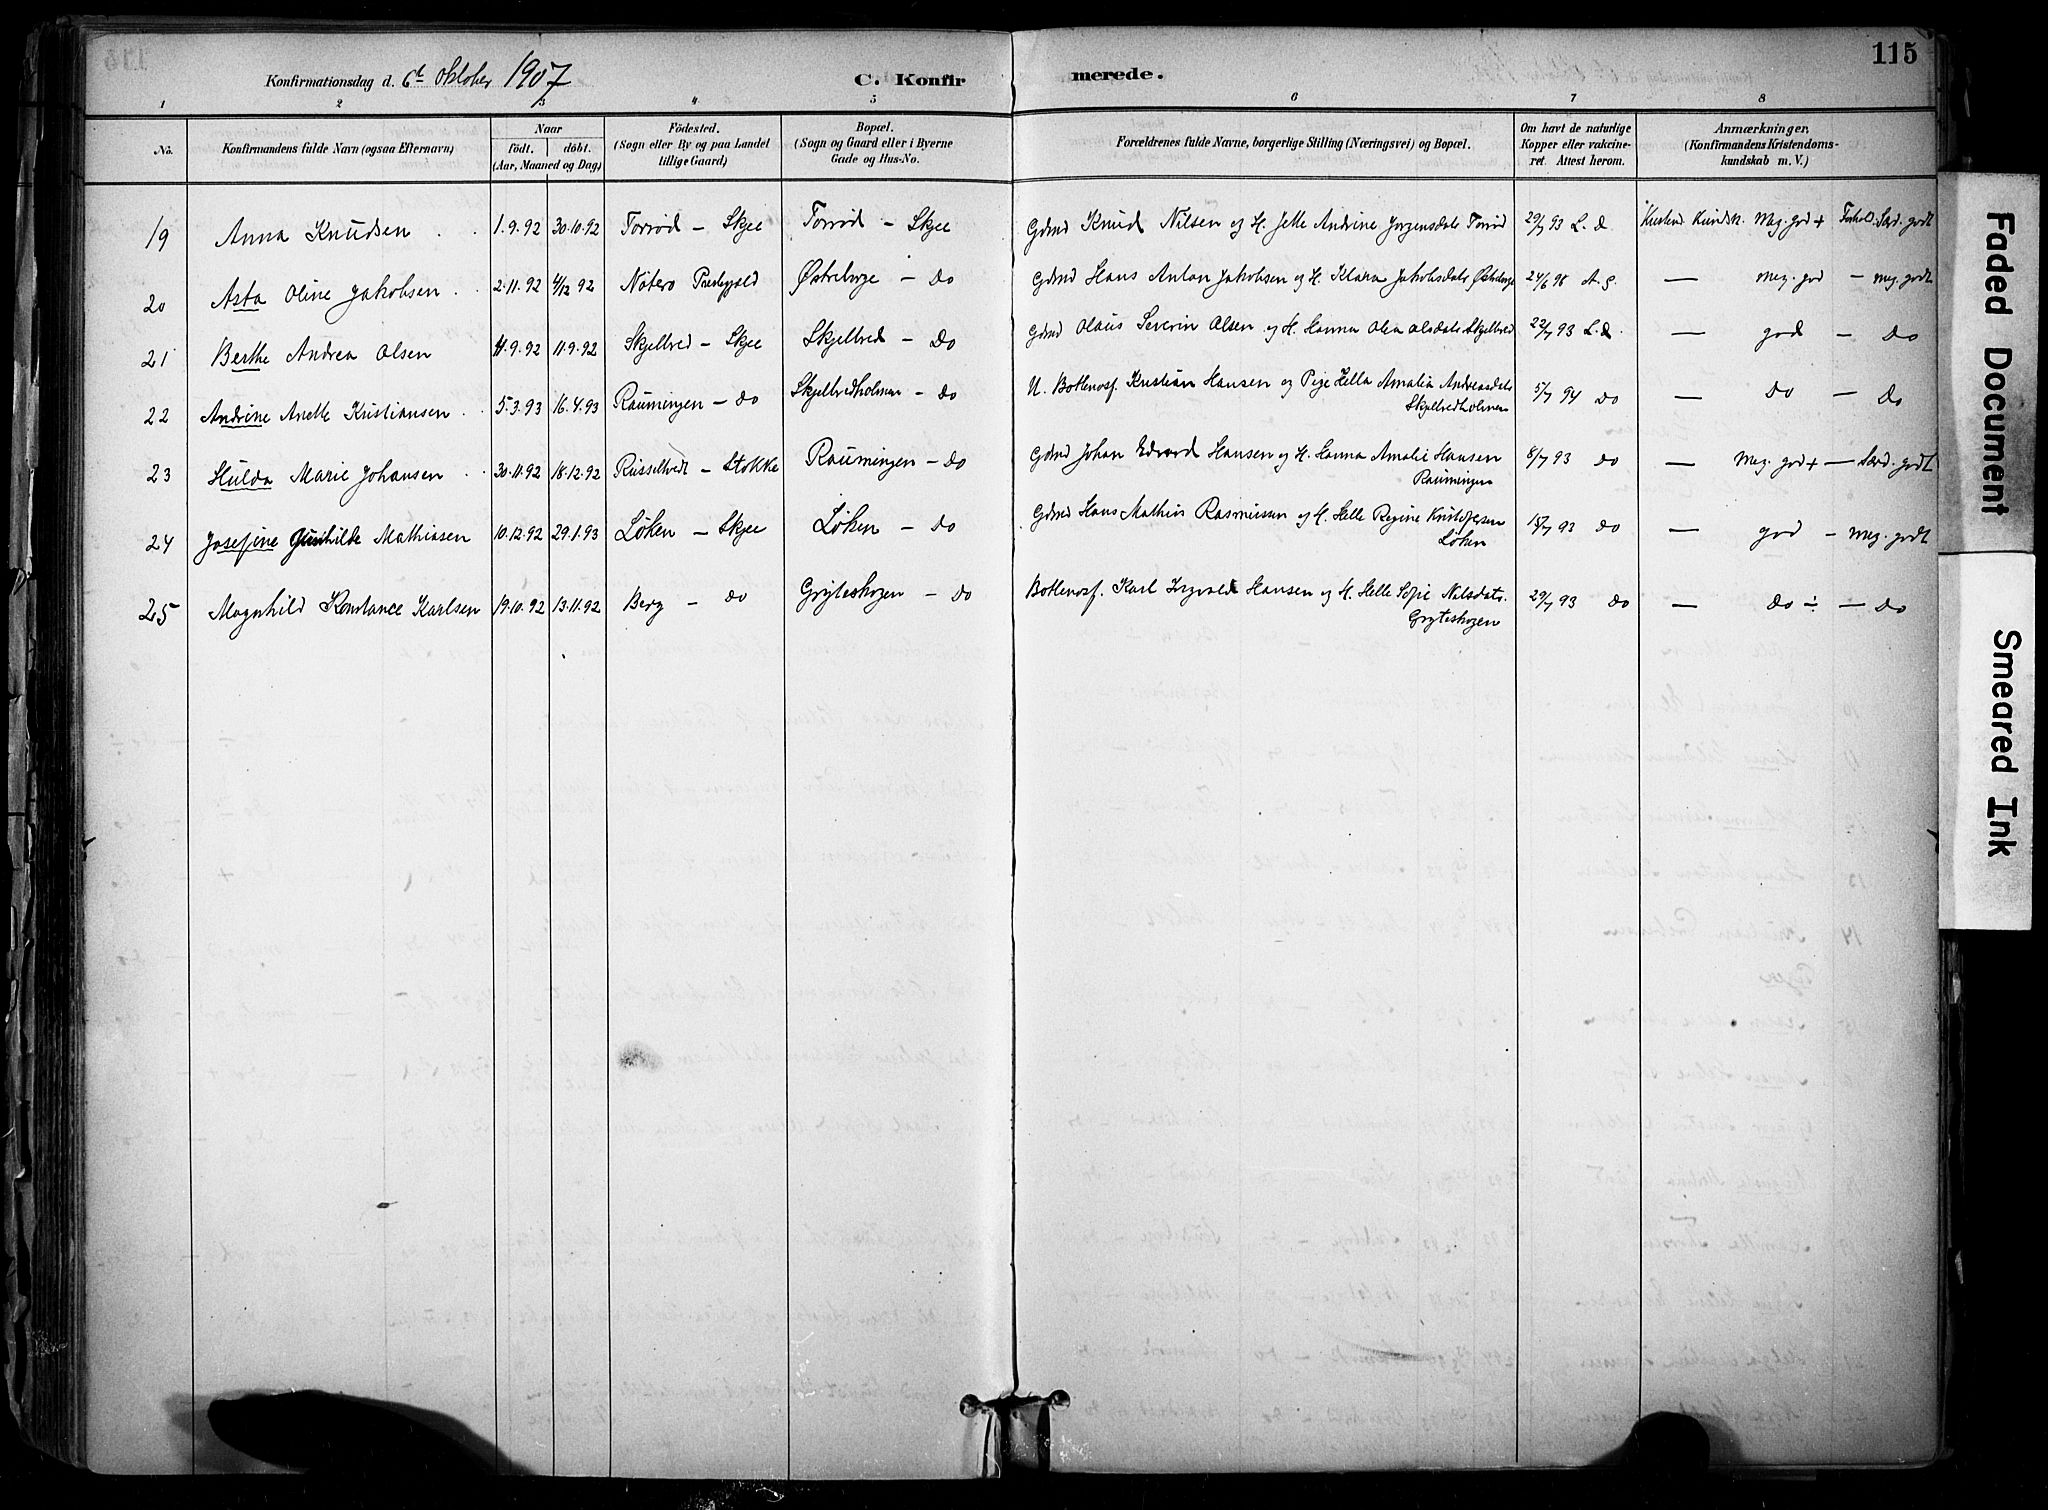 115
Konfirmationsdag d. 6te Oktober 1907 C. Konfirmerede.
1 2 3 4 5 6 7 8
No.
Konfirmandens fulde Navn (ogsaa Efternavn)
Naar
født. døbt.
(Aar, Maaned og Dag)
Födested.
(Sogn eller By og paa Landet
tillige Gaard)
Bopæl.
(Sogn og Gaard eller i Byerne
Gade og Hus-No.
Forældrenes fulde Navne, borgerlige Stilling (Næringsvei) og Bopæl.
Om havt de naturlige
Kopper eller vakcine-
ret. Attest herom.
Anmærkninger.
(Konfirmandens Kristendoms-
kundskab m. V.)
19 Anna Knudsen 1.9.92 30.10.92 Torrød - Skjee Torrød - Skjee Gdmd Knud Nilsen og H. Jette Andrine Jorgensdatr Torrød 29/7 93 L. d Kristend. Kundsk. Meg. god + Forhold. Særd. godt
20 Asta Oline Jakobsen 2.11.92 4/12 92 Nøtterø Østreborge - Do Gdmd Hans Anton Jakobsen og H. Klara Jakobsdatr Østreborge 24/6 98 A. S. — Meg. god — Meg. godt
21 Berthe Andrea Olsen 4.9.92 11.9.92 Skjelbred - Skjee Skjelbred - Do Gdmd Olaus Severin Olsen og H. Hanna Olea Olsdatr Skjelbred 22/7 93 L. d. — god — Do
22 Andrine Anette Kristiansen 5.3.93 16.4.93 Raumingen - do Skjelbredholmen - Do U. Bottenosf. Kristian Hansen og Pige Hella Amalia Andreasdatr 5/7 94 do — Do — Do
Skjelbredholmen
23 Hulda Marie Johansen 30.11.92 18.12.92 Russeltvedt - Stokke Raumingen - Do Gdmd Johan Edvard Hansen og H. Hanna Amalie Hansen 8/7 93 do — Meg. god + — Særd. godt
Raumingen
24 Josefine Gunhilde Mathiasen 10.12.92 29.1.93 Løken - Skjee Løken - Do Gdmd Hans Mathias Rasmussen og H. Helle Regine Kristofersen 15/7 93 do — god — Meg. godt
Løken
25 Magnhild Konstance Karlsen 19.10.92 13.11.92 Berg - do Gryteskogen - Do Bottenosf. Karl Ingvald Hansen og H. Helle Sofie Nilsdatr. 29/7 93 do — Do ÷ — Do
Gryteskogen
Faded Document
Smeared Ink